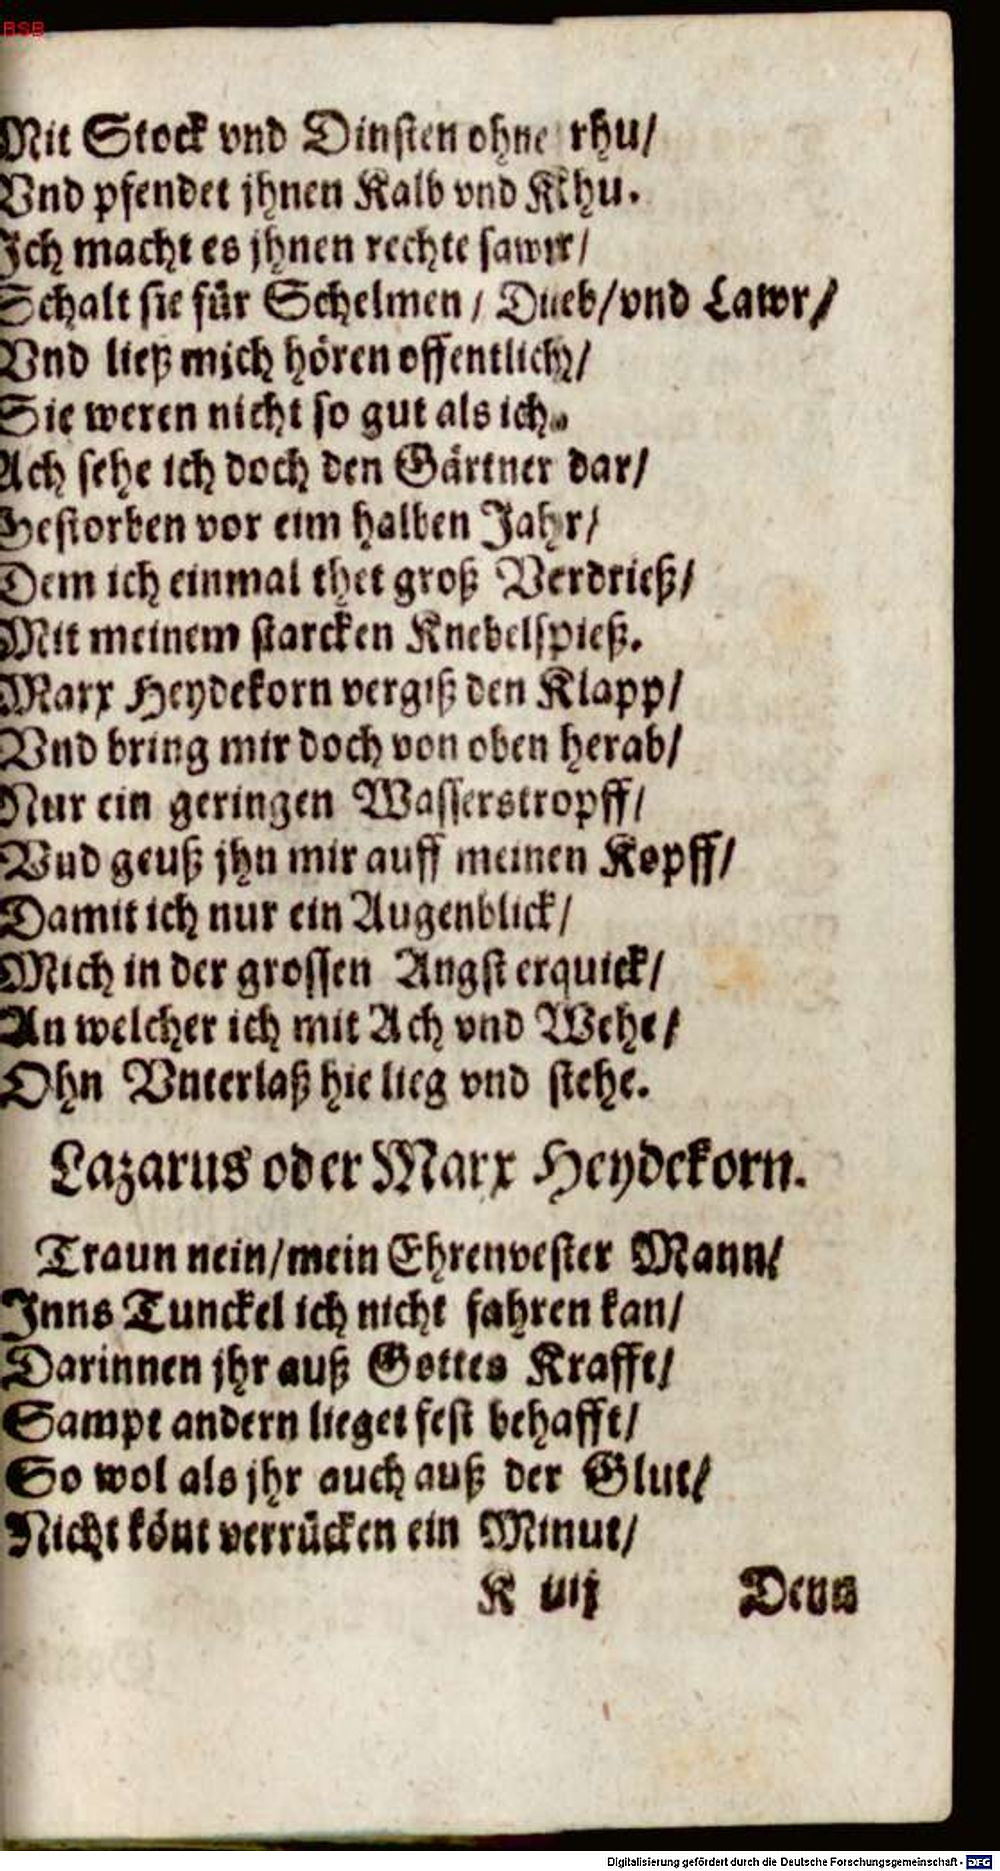 BSB
Mit Stock vnd Dinsten ohne rhu/
Vnd pfendet jhnen Kalb vnd Kihu.
Ich macht es jhnen rechte sawr/
Schalt sie für Schelmen / Dueb/vnd Lawr/
Vnd ließ mich hören offentlich/
Sie weren nicht so gut als ich.
Ach sehe ich doch den Gärtner dar/
Gestorben vor eim halben Jahr/
Dem ich einmal thet groß Verdrieß/
Mit meinem starcken Knebelspieß.
Marx Heydekorn vergiß den Klapp/
Vnd bring mir doch von oben herab/
Nur ein geringen Wasserstropff/
Vnd geuß jhn mir auff meinen Kopff/
Damit ich nur ein Augenblick/
Mich in der grossen Angst erquick/
An welcher ich mit Ach vnd Wehe/
Ohn Vnterlaß hie lieg vnd stehe.
Lazarus oder Marx Heydekorn.
Traun nein/mein Ehrenvester Mann/
Inns Tunckel ich nicht fahren kan/
Darinnen jhr auß Gottes Krafft/
Sampt andern lieget fest behafft/
So wol als jhr auch auß der Glut/
Nicht könt verrücken ein Minut/
K iiij Denn
Digitalisierung gefördert durch die Deutsche Forschungsgemeinschaft - DFG